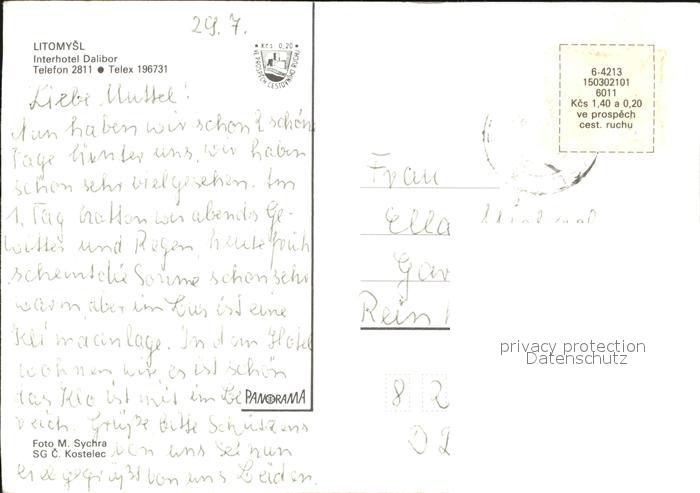 29. 7.
LITOMYŠL
Interhotel Dalibor
Telefon 2811 ● Telex 196731
Kčs 0,20
VE PROSPĚCH CESTOVNÍHO RUCHU
Liebe Muttel!
Nun haben wir schon 2 schöne
Tage hinter uns, wir haben
schon sehr viel gesehen. Im
1. Tag hatten wir abends Ge-
witter und Regen, heute früh
scheint die Sonne schon sehr
warm, aber im Bus ist eine
Klimaanlage. In dem Hotel
wohnen wir, es ist schön
das Klo ist mit im Be
reich. Grüße bitte
von uns Sei nun
viel gegrüßt von uns Beiden.
PANORAMA
Foto M. Sychra
SG Č. Kostelec
6-4213
150302101
6011
Kčs 1,40 a 0,20
ve prospěch
cest. ruchu
Frau
Ella
Gar
Rein
8 2
privacy protection
Datenschutz